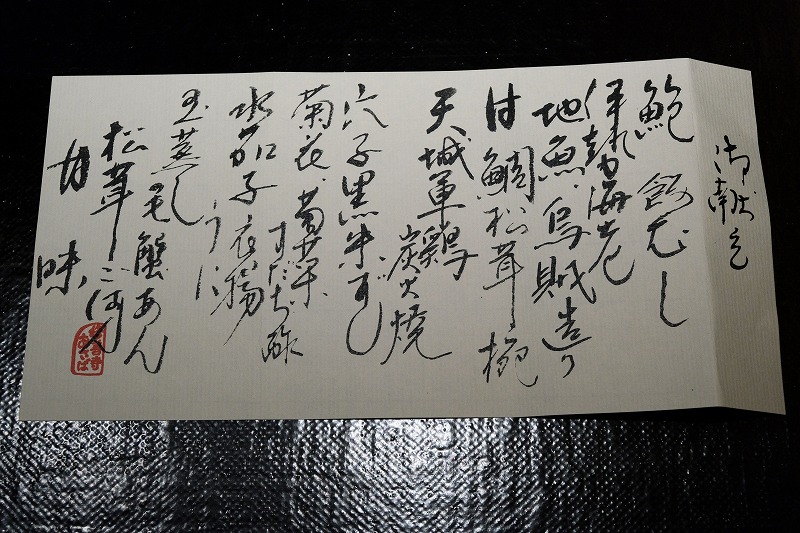 御献立
鮑 飯むし
伊勢海老
地魚、烏賊造り
甘鯛松茸椀
天城軍鶏
炭火焼
穴子黒米ずし
菊花、菊菜
すだち酢
水茄子衣揚
うに
玉蒸し
毛蟹あん
松茸ごはん
甘味